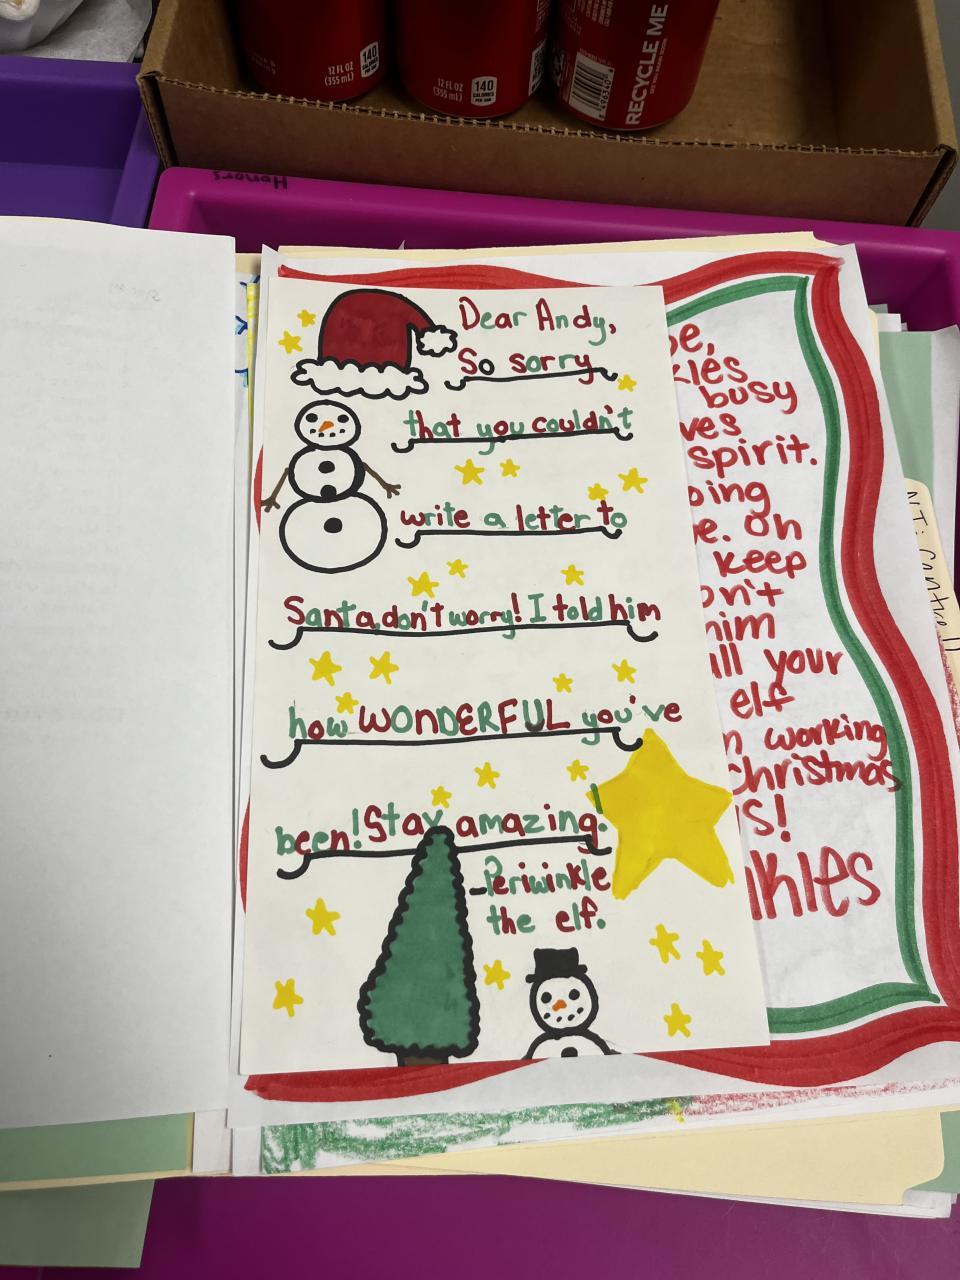 12 FL OZ
(355 mL)
140
CALORIES
PER CAN
12 FL OZ
(355 mL)
140
CALORIES
PER CAN
RECYCLE ME
Honors
Dear Andy,
So sorry
that you couldn't
write a letter to
Santa, don't worry! I told him
how WONDERFUL you've
been! Stay amazing!
-Periwinkle
the elf.
busy
spirit.
. Oh
keep
him
your
elf
working
christmas